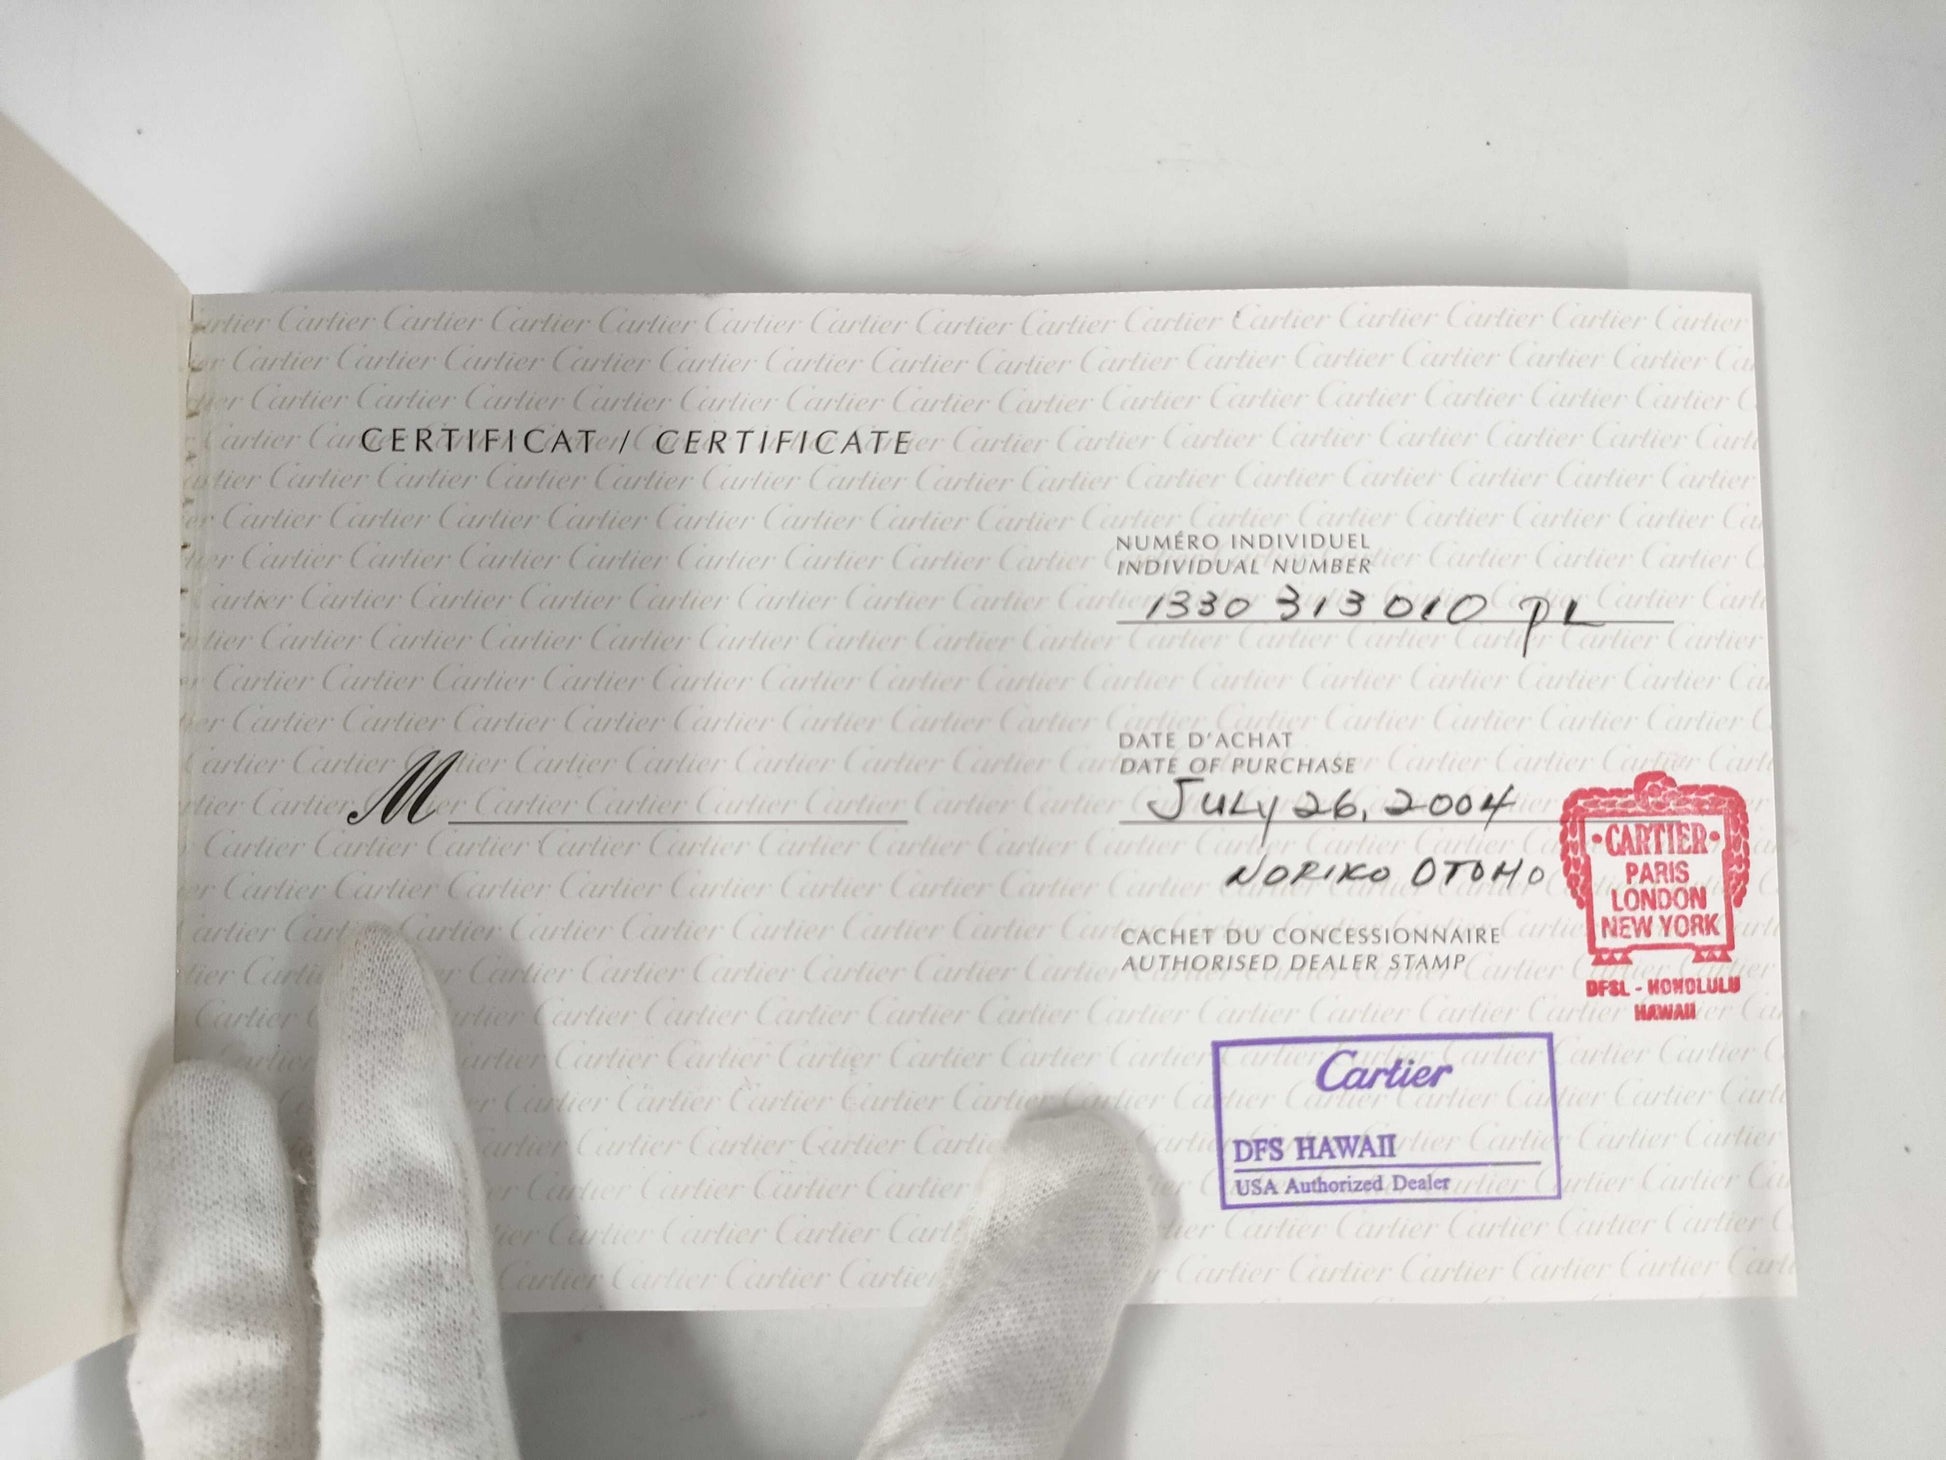 CERTIFICAT / CERTIFICATE
NUMÉRO INDIVIDUEL
INDIVIDUAL NUMBER
1330 313010 PL
M
DATE D'ACHAT
DATE OF PURCHASE
JULY 26, 2004
NORIKO OTOMO
CACHET DU CONCESSIONNAIRE
AUTHORISED DEALER STAMP
•CARTIER•
PARIS
LONDON
NEW YORK
DFSL - HONOLULU
HAWAII
Cartier
DFS HAWAII
USA Authorized Dealer